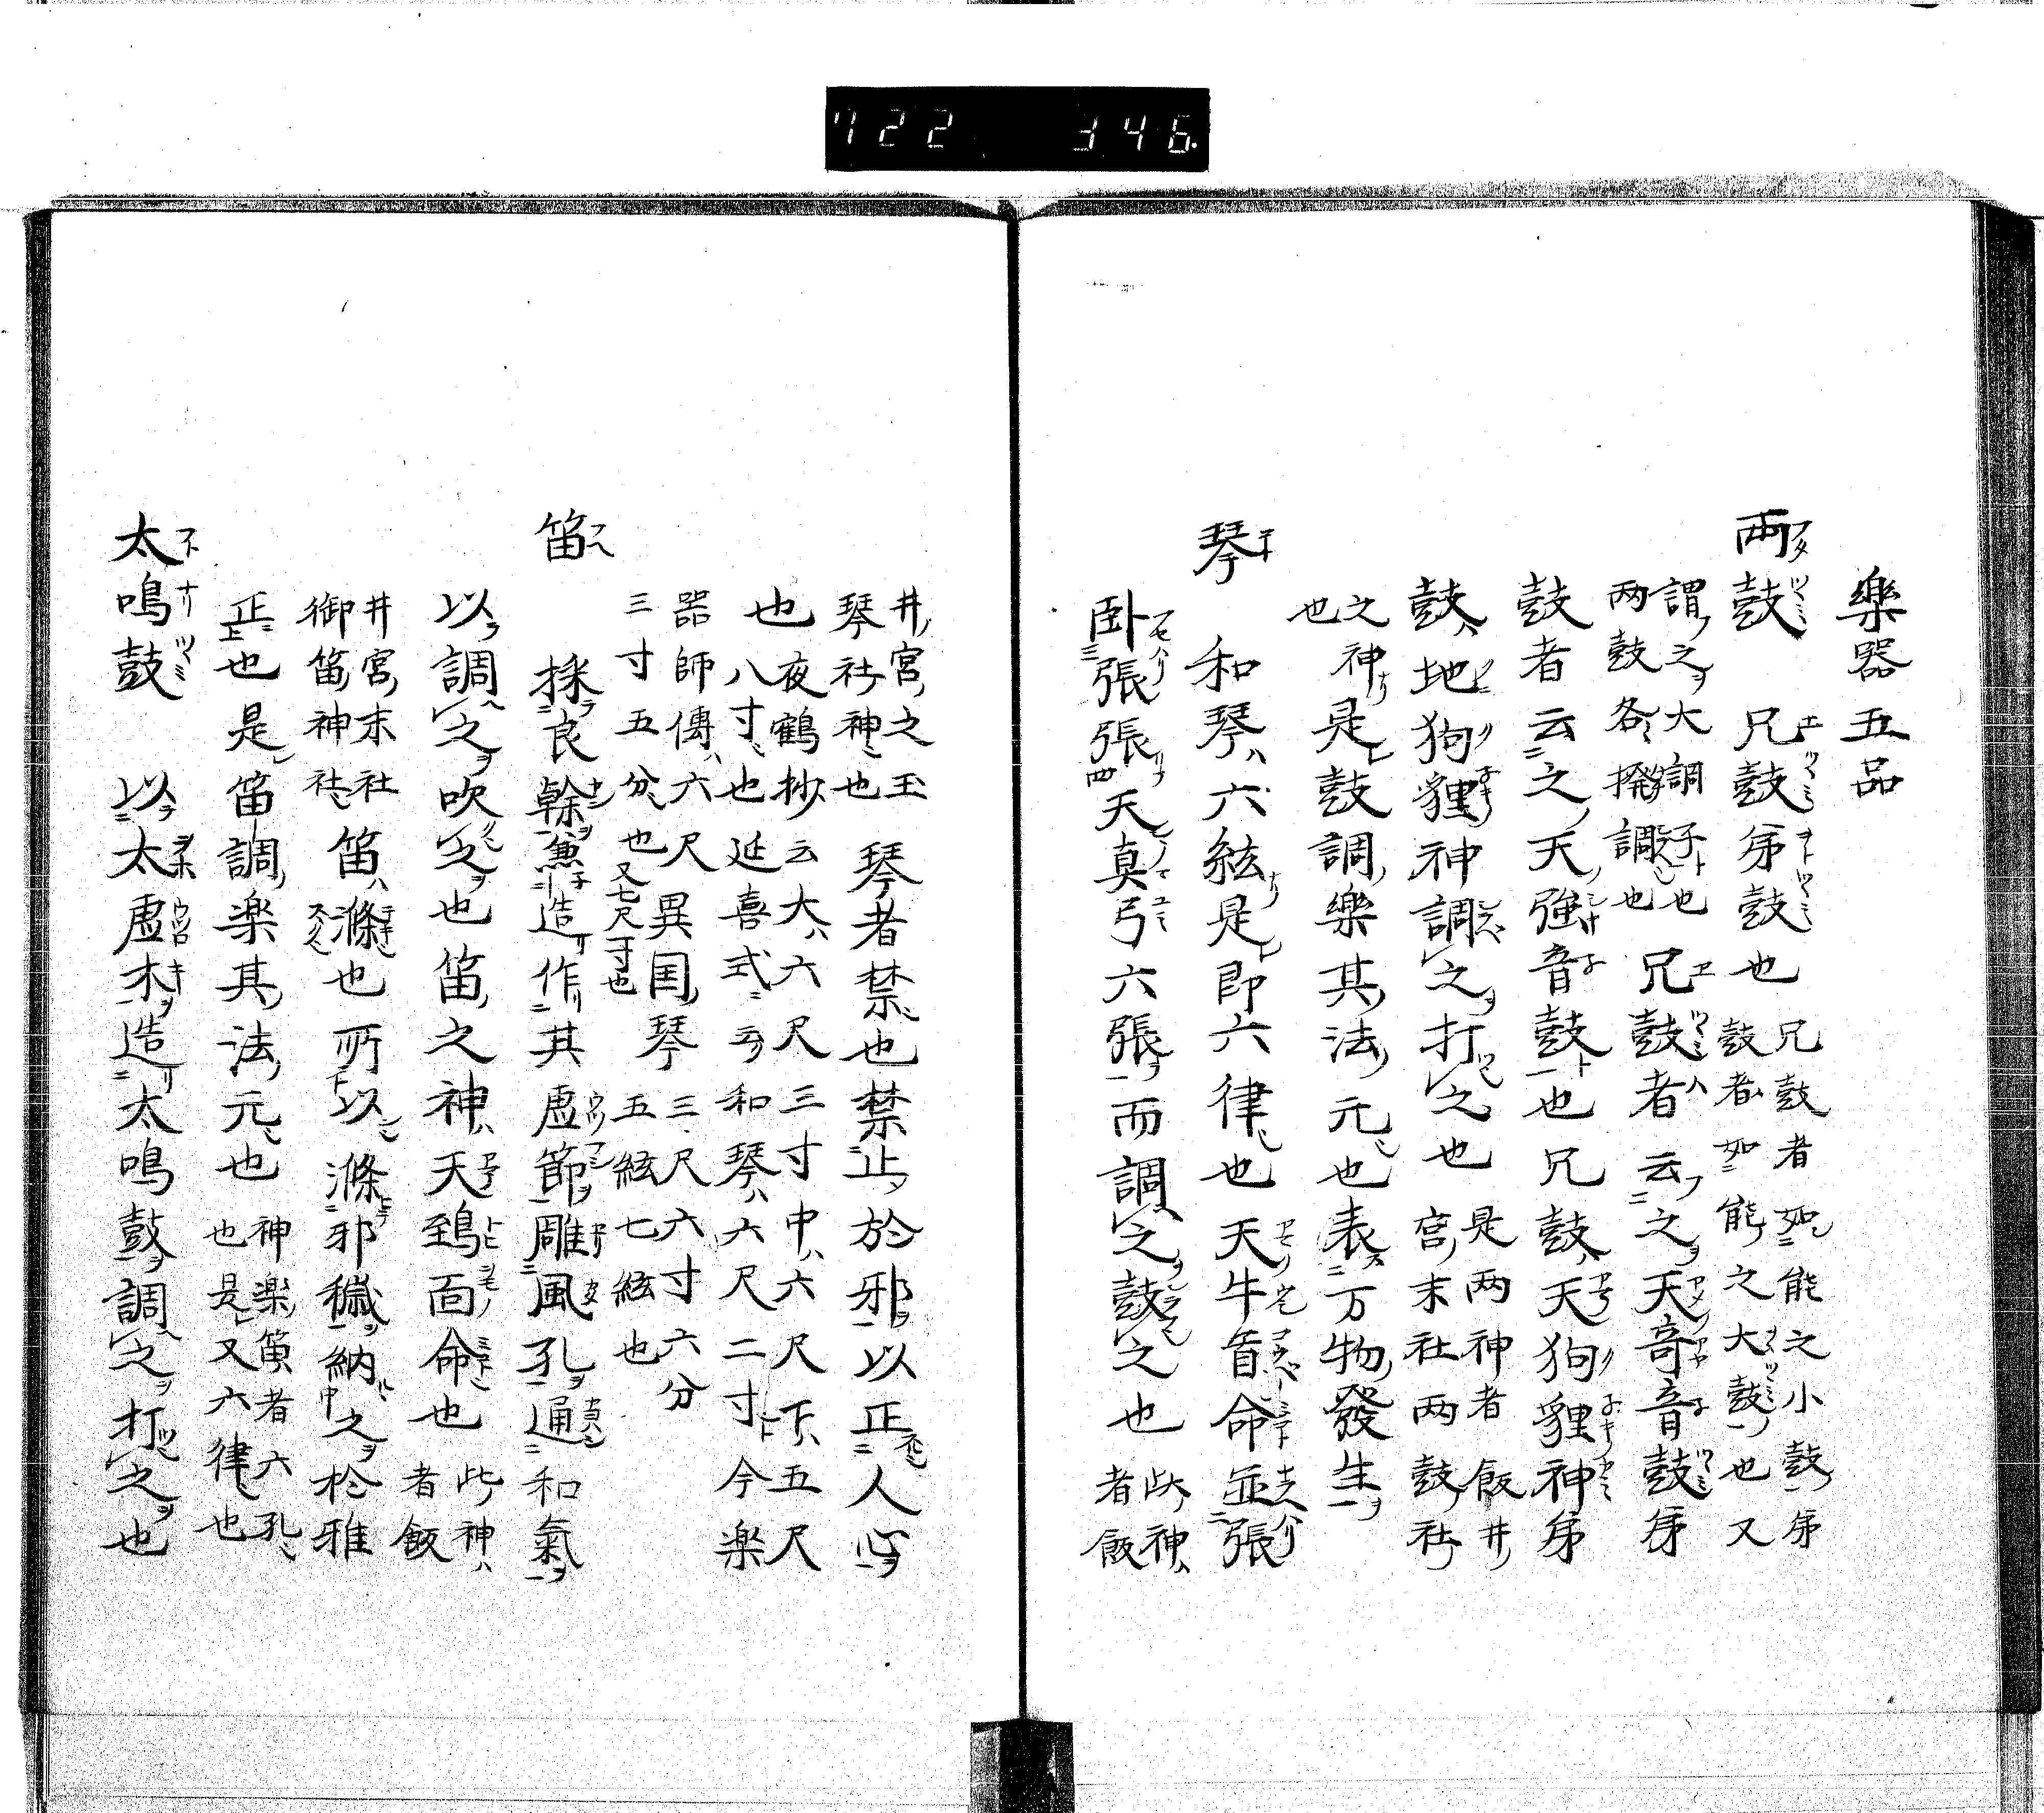 722 346.
樂器五品
兩鼓 兄鼓弟鼓也 兄鼓者如能之小鼓弟
鼓者如能之大鼓也又
謂之大調子也
两鼓各撥調也 兄鼓者云之天奇音鼓弟
鼓者云之天強音鼓也兄鼓天狗貍神弟
鼓地狗貍神調之打之也 是两神者飯井
宮末社两鼓社
之神
也 是鼓調樂其法元也表万物發生
琴 和琴六絃是即六律也天牛首命並張
卧張張天真弓六張而調之鼓之也 此神
者飯
井宮之玉
琴社神也 琴者禁也禁止於邪以正人心
也 夜鶴抄云大六尺三寸中六尺下五尺
八寸也延喜式云和琴六尺二寸今楽
器師傳六尺
三寸五分也又七尺寸也 異国琴 三尺六寸六分
五絃七絃也
笛 採良幹兼造作其虚節雕風孔通和氣
以調之吹之也笛之神天鵄面命也 此神
者飯
井宮末社
御笛神社 笛滌也所以滌邪穢納之於雅
正也是笛調楽其法元也 神楽笛者六孔
也是又六律也
太鳴鼓 以太虚木造太鳴鼓調之打之也